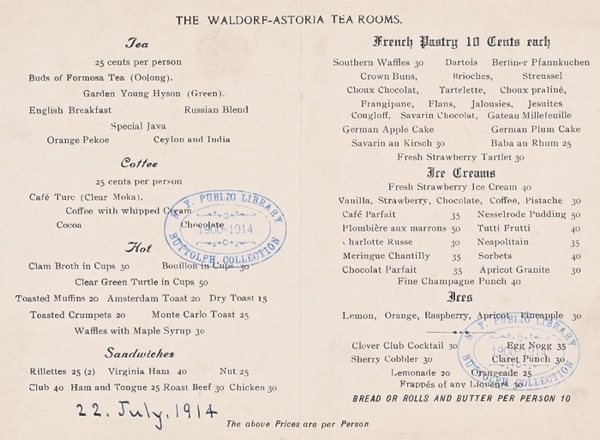 THE WALDORF-ASTORIA TEA ROOMS.
Tea
25 cents per person
Buds of Formosa Tea (Oolong).
Garden Young Hyson (Green).
English Breakfast Russian Blend
Special Java
Orange Pekoe Ceylon and India
Coffee
25 cents per person
Café Turc (Clear Moka).
Coffee with whipped Cream
Cocoa Chocolate
Hot
Clam Broth in Cups 30 Bouillon in Cups 30
Clear Green Turtle in Cups 50
Toasted Muffins 20 Amsterdam Toast 20 Dry Toast 15
Toasted Crumpets 20 Monte Carlo Toast 25
Waffles with Maple Syrup 30
Sandwiches
Rillettes 25 (2) Virginia Ham 40 Nut 25
Club 40 Ham and Tongue 25 Roast Beef 30 Chicken 30
22. July, 1914
French Pastry 10 Cents each
Southern Waffles 30 Dartois Berliner Pfannkuchen
Crown Buns, Brioches, Streussel
Choux Chocolat, Tartelette, Choux praliné,
Frangipane, Flans, Jalousies, Jesuites
Cougloff. Savarin Chocolat, Gateau Millefeuille
German Apple Cake German Plum Cake
Savarin au Kirsch 30 Baba au Rhum 25
French Strawberry Tartlet 30
Ice Creams
Fresh Strawberry Ice Cream 40
Vanilla, Strawberry, Chocolate, Coffee, Pistache 30
Café Parfait 35 Nesselrode Pudding 50
Plombière aux marrons 50 Tutti Frutti 40
Charlotte Russe 30 Neapolitain 35
Meringue Chantilly 35 Sorbets 40
Chocolat Parfait 35 Apricot Granite 30
Fine Champagne Punch 40
Ices
Lemon, Orange, Raspberry, Apricot, Pineapple 30
Clover Club Cocktail 30 Egg Nogg 35
Sherry Cobbler 30 Claret Punch 30
Lemonade 20 Orangeade 25
Frappés of any Liqueurs 30
BREAD OR ROLLS AND BUTTER PER PERSON 10
The above Prices are per Person
N. Y. PUBLIC LIBRARY
1900-1914
BUTTOLPH COLLECTION
N. Y. PUBLIC LIBRARY
1900-1914
BUTTOLPH COLLECTION